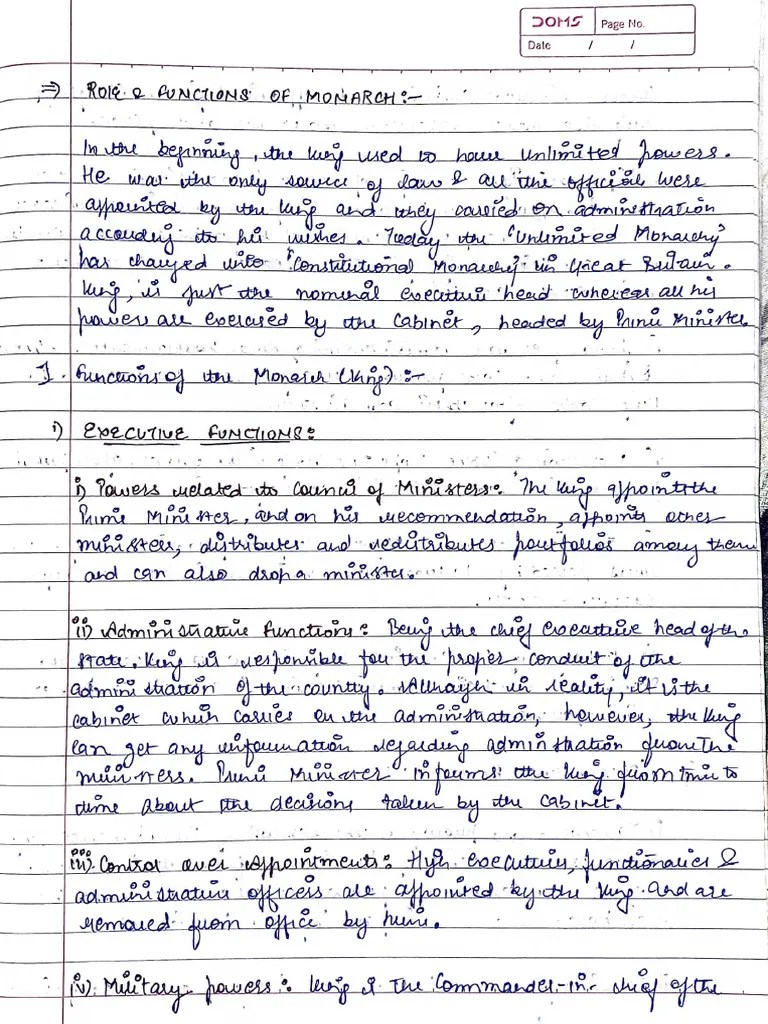 DOMS Page No.
Date / /
⇒ ROLE & FUNCTIONS OF MONARCH:-
In the beginning, the king used to have unlimited powers.
He was the only source of law & all the officials were
appointed by the king and they carried on administration
according to his wishes. Today the "Unlimited Monarchy"
has changed into "Constitutional Monarchy" in Great Britain.
King, is just the nominal executive head whereas all his
powers are exercised by the Cabinet, headed by Prime Minister.
I. Functions of the Monarch (King) :-
i) EXECUTIVE FUNCTIONS:
i) Powers related to Council of Ministers: The king appoints the
Prime Minister, and on his recommendation, appoints other
ministers, distributes and redistributes portfolios among them
and can also drop a minister.
ii) Administrative functions: Being the chief executive head of the
state, King is responsible for the proper conduct of the
administration of the country. Although in reality, it is the
cabinet which carries on the administration, however, the King
can get any information regarding administration from the
ministers. Prime Minister informs the King from time to
time about the decisions taken by the Cabinet.
iii) Control over appointments: High executives, functionaries &
administrative officers are appointed by the King and are
removed from office by him.
iv) Military powers: King is the Commander-in-chief of the